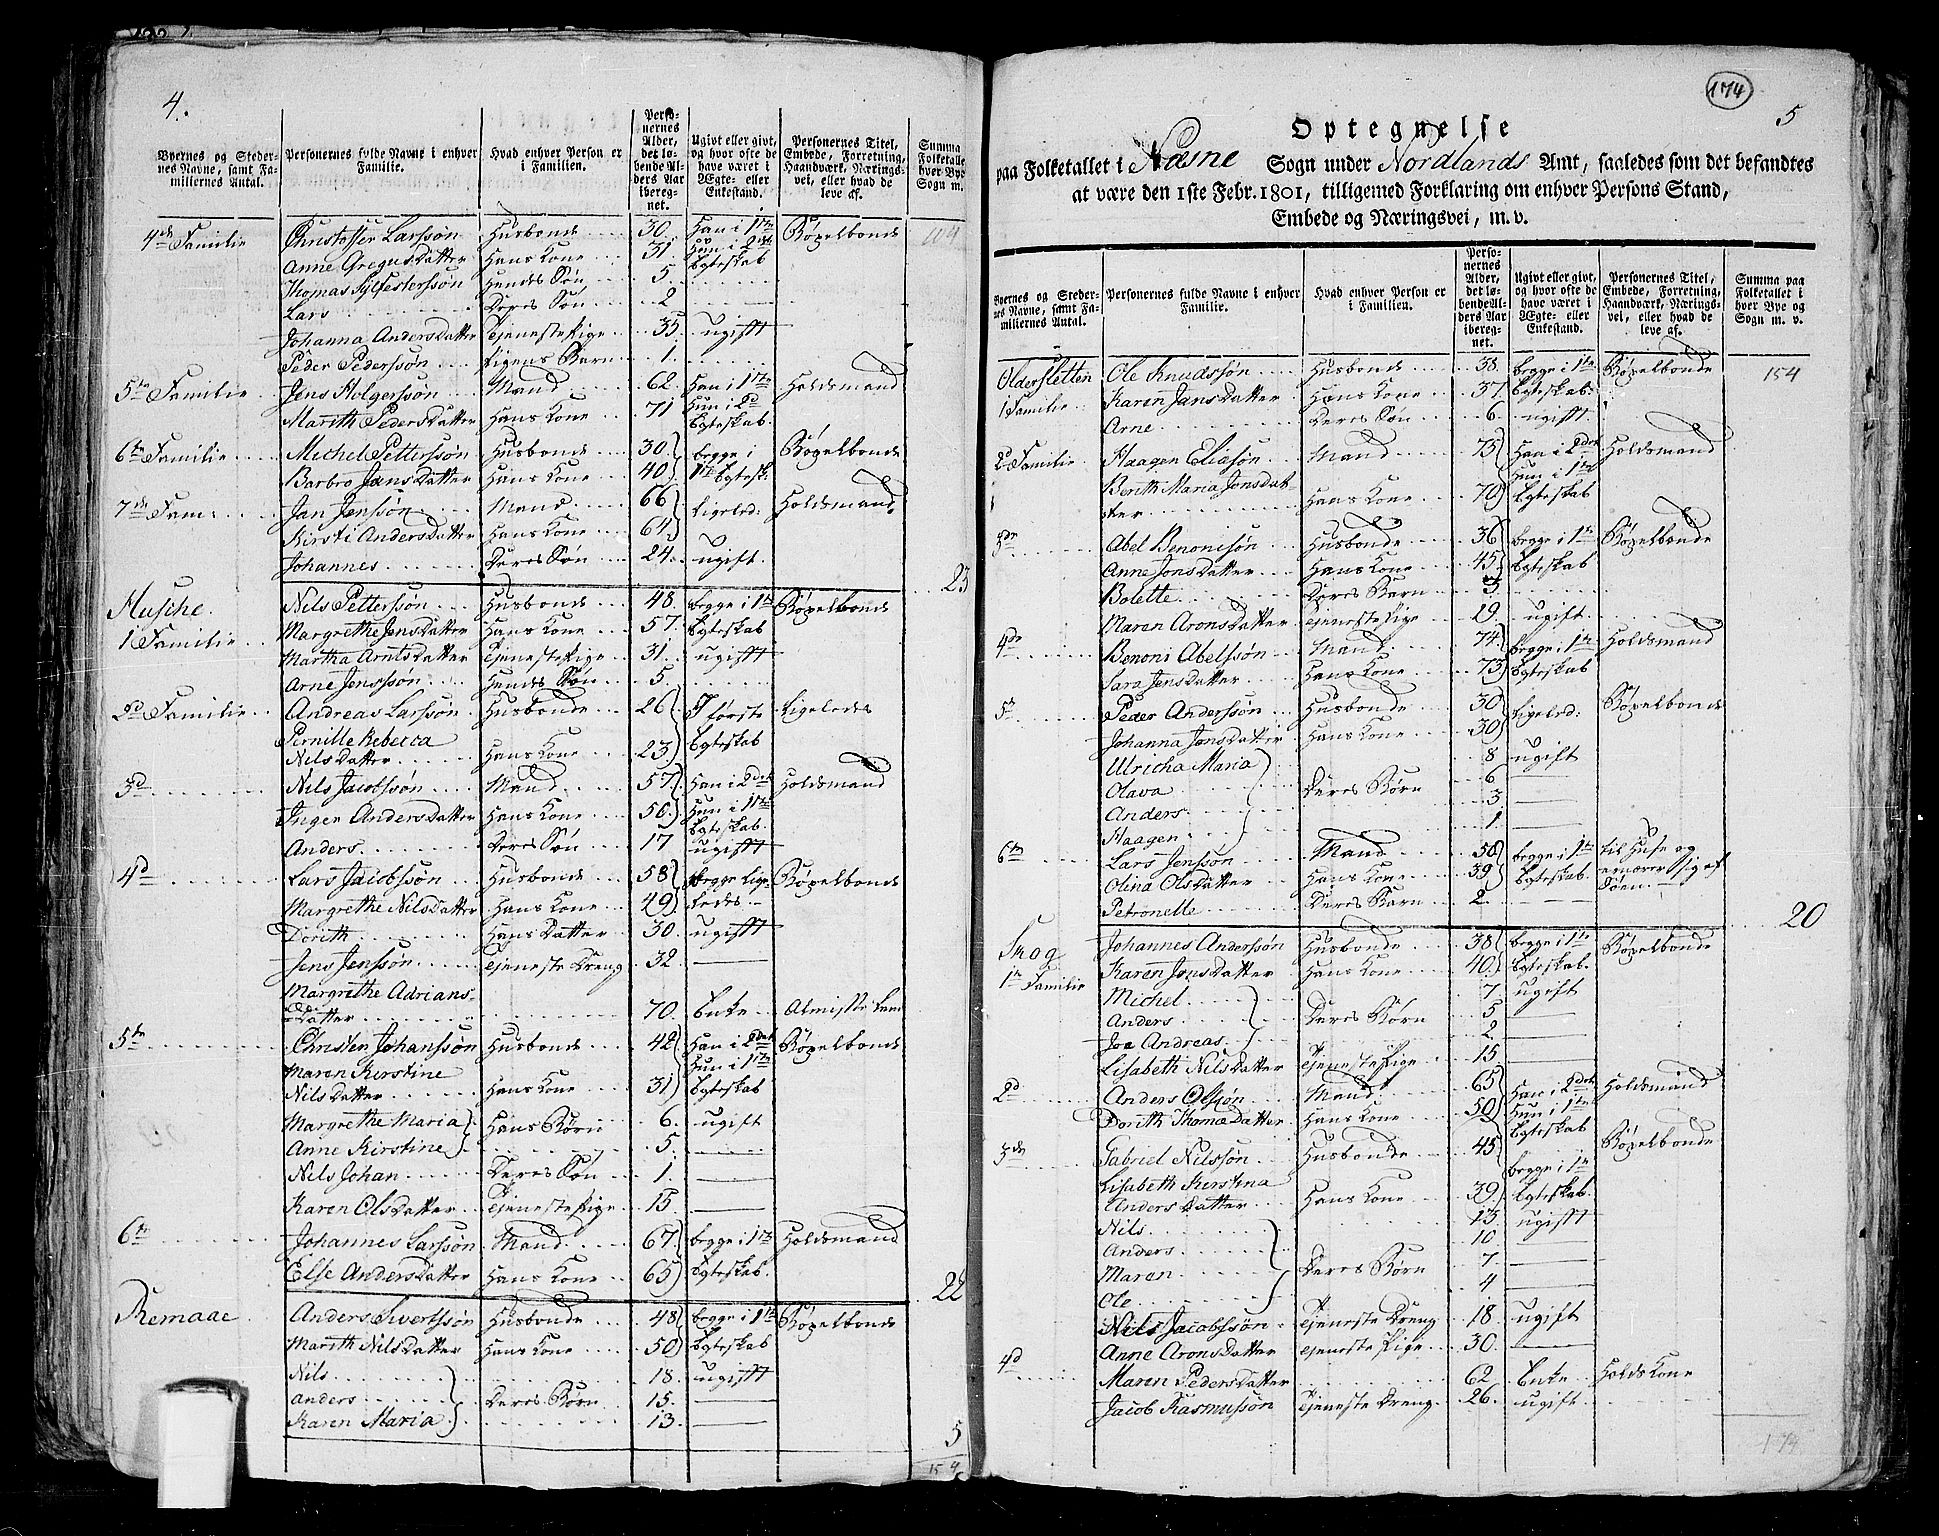 4.
Byernes og Stedernes Navne, samt Familiernes Antal. | Personernes fulde Navne i enhver Familie. | Hvad enhver Person er i Familien. | Personernes Alder, det løbende Alders Aar iberegnet. | Ugivt eller givt, og hvor ofte de have været i Ægte- eller Enkestand. | Personernes Titel, Embede, Forretning, Haandværk, Næringsvei, eller hvad de leve af. | Summa Folketallet hver Bye Sogn m.
4de Familie Christoffer Larssøn Husbonde 30. Han i 1te Bøxelbonde 104
Anne Gregusdatter Hans Kone 31. Hun i 2det
Thomas Sylfesterssøn Hendes Søn 5. Egteskab
Lars Deres Søn 2
Johanna Andersdatter Tjenestepige 35. ugift
Peder Pederssøn Pigens Barn 1.
5te Familie Jens Holgerssøn Mand 62. Han i 1te Holdsmand
Marith Pedersdatter Hans Kone 71 Hun i 2d Egteskab.
6te Familie Michel Petterssøn Husbonde 30. begge i Bøxelbonde
Barbro Jansdatter Hans Kone 40. 1te Egtesk:
7de Fam: Jan Jenssøn Mand 66 Ligeled: Holdsmand
Kirsti Andersdatter Hans Kone 64.
Johannes Deres Søn 24. ugift. 23
Husche. Nils Petterssøn Husbonde 48. begge i 1te Bøxelbonde
1 Familie Margrethe Jensdatter Hans Kone 57. Egteskab
Martha Arntsdatter Tjenestepige 31. ugift
Arne Jenssøn Hendes Søn 5.
2d Familie Andreas Larssøn Husbonde 26 I første Ligeledes
Pernille Rebecca
Nilsdatter Hans Kone 23 Egteskab
3d Nils Jacobssøn Mand 57 Han i 2det Holdsmand
Inger Andersdatter Hans Kone 50. Hun i 1te Egteskab.
Anders Deres Søn 17 ugift
4d Lars Jacobssøn Husbonde 58 begge Lige- Bøxelbonde
Margrethe Nilsdatter Hans Kone 49 ledes
Dorith Hans Datter 30. ugift
Jens Jenssøn Tjeneste Dreng 32.
Margrethe Adrians-
Datter 70. Enke Almisse Lem
5te Christen Johanssøn Husbonde 42 Han i 2det Bøxelbonde
Maren Kirstine Hun i 1te
Nilsdatter Hans Kone 31 Egteskab
Margrethe Maria Hans Børn 6. ugift
Anne Kirstine 5.
Nils Johan Deres Søn 1.
Karen Olsdatter Tjenestepige 15.
6te Johannes Larssøn Mand 67. begge i 1te Holdsmand
Else Andersdatter Hans Kone 65 Egteskab. 22
Remaae Anders Sivertssøn Husbonde 48 begge i 1te Bøxelbonde
Marith Nilsdatter Hans Kone 50 Egteskab
Nils 18. ugift
Anders Deres Børn 15.
Karen Maria 13. 5
154
174
5
Optegnelse
paa Folketallet i Næsne Sogn under Nordlands Amt, saaledes som det befandtes
at være den 1ste Febr. 1801, tilligemed Forklaring om enhver Persons Stand,
Embede og Næringsvei, m. v.
Byernes og Stedernes Navne, samt Familiernes Antal. | Personernes fulde Navne i enhver Familie. | Hvad enhver Person er i Familien. | Personernes Alder, det løbende Alders Aar iberegnet. | Ugivt eller givt, og hvor ofte de have været i Ægte- eller Enkestand. | Personernes Titel, Embede, Forretning, Haandværk, Næringsvei, eller hvad de leve af. | Summa paa Folketallet i hver Bye og Sogn m. v.
Oldersletten Ole Knudssøn Husbonde 38. begge i 1te Bøxelbonde 154
1 Familie Karen Jansdatter Hans Kone 37 Egteskab.
Arne Deres Søn 6. ugift
2d Familie Haagen Eliasøn Mand 73 Han i 2det Holdsmand
Berith Maria Jonsdat- Hun i 1te
ter Hans Kone 70 Egteskab
3de Abel Benonisøn Husbonde 36 begge i 1te Bøxelbonde
Anne Jonsdatter Hans Kone 45. Egteskab
Bolette Deres Barn 3.
Maren Aronsdatter Tjenestepige 19. ugift
4de Benoni Abelssøn Mand 74. begge i 1te Holdsmand
Sara Jensdatter Hans Kone 73 Egteskab
5te Peder Anderssøn Husbonde 30 Ligeled: Bøxelbonde
Johanna Jonsdatter Hans Kone 30
Ulricha Maria 8 ugift
Olava Deres Børn 6
Anders 3.
Haagen 1.
6te Lars Jenssøn Mand 50 begge i 1te til Huse og
Olina Olsdatter Hans Kone 39 Egteskab. ernærer sig af Søen.
Petronelle Deres Barn 2. 20
Skog Johannes Anderssøn Husbonde 38 begge i 1te Bøxelbonde
1te Familie Karen Jonsdatter Hans Kone 40. Egteskab.
Michel 7 ugift
Anders Deres Børn 5
Joe Andreas 2
Lisabeth Nilsdatter Tjenestepige 15.
2d Anders Olssøn Mand 65 Han i 2det Holdsmand
Dorith Thomædatter Hans Kone 50 Hun i 1te Egteskab
3de Gabriel Nilssøn Husbonde 45 begge i 1te Bøxelbonde
Lisabeth Kirstina
Andersdatter Hans Kone 39. Egteskab.
Nils 13. ugift
Anders 10.
Maren Deres Børn 7
Ole 4
Nils Jacobssøn Tjeneste Dreng 18 ugift
Anne Aronsdatter Tjeneste Pige 30.
4d Maren Pedersdatter 62 Enke Holds Kone
Jacob Rasmussøn Tjeneste Dreng. 26. ugift.
174